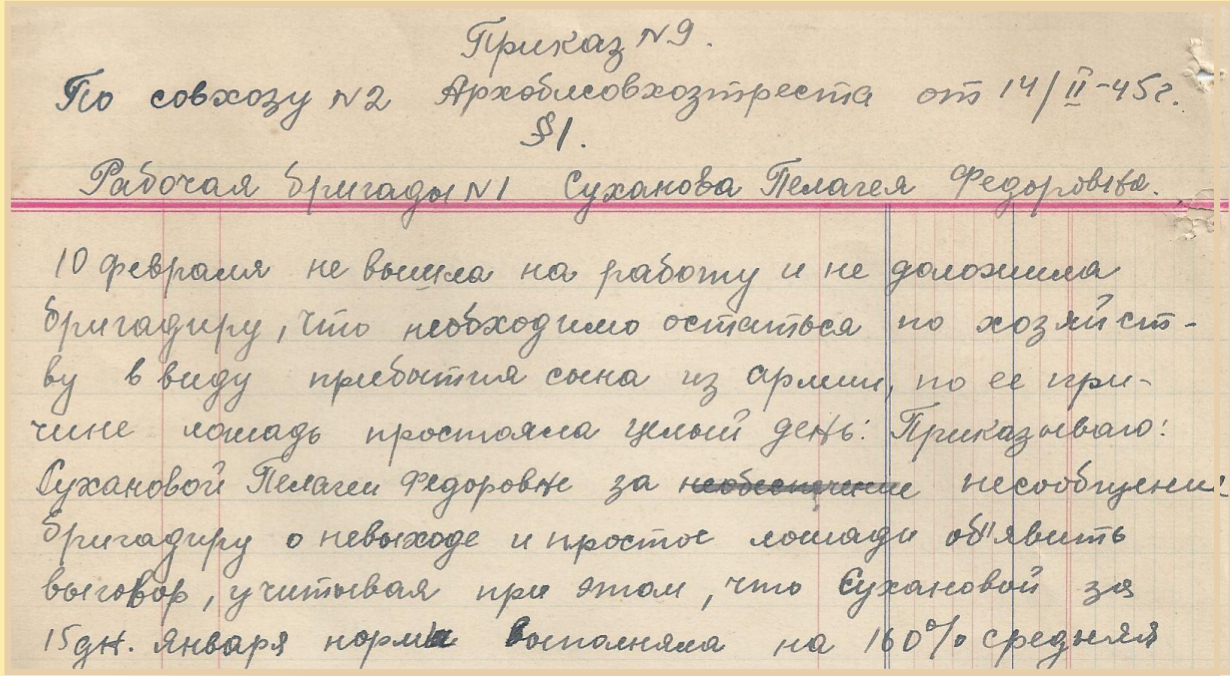 Приказ №9.
По совхозу №2 Архоблсовхозтреста от 14/II-45г.
§1.
Рабочая бригады №1 Суханова Пелагея Федоровна.
10 февраля не вышла на работу и не доложила
бригадиру, что необходимо остаться по хозяйст-
ву в виду прибытия сына из армии, по ее при-
чине лошадь простояла целый день. Приказываю:
Сухановой Пелагеи Федоровне за необеспечение несообщение
бригадиру о невыходе и простое лошади об'явить
выговор, учитывая при этом, что Сухановой за
15 дн. января нормы выполняла на 160% средняя